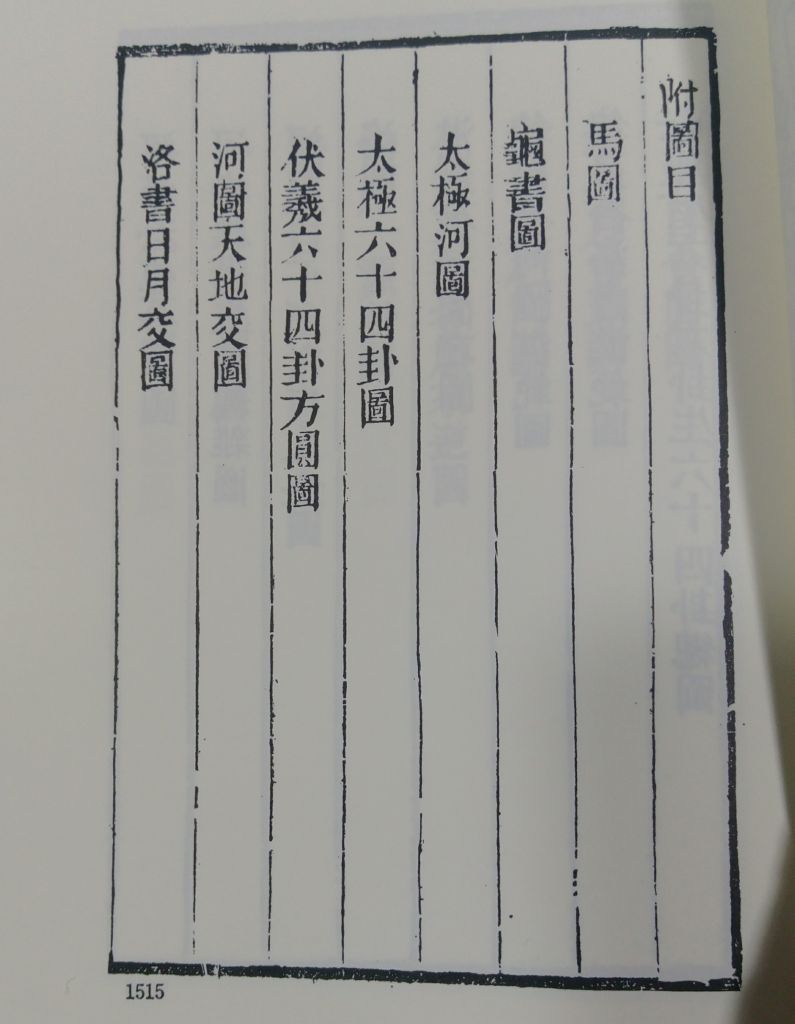 附圖目
馬圖
龜書圖
太極河圖
太極六十四卦圖
伏羲六十四卦方圓圖
河圖天地交圖
洛書日月交圖
1515